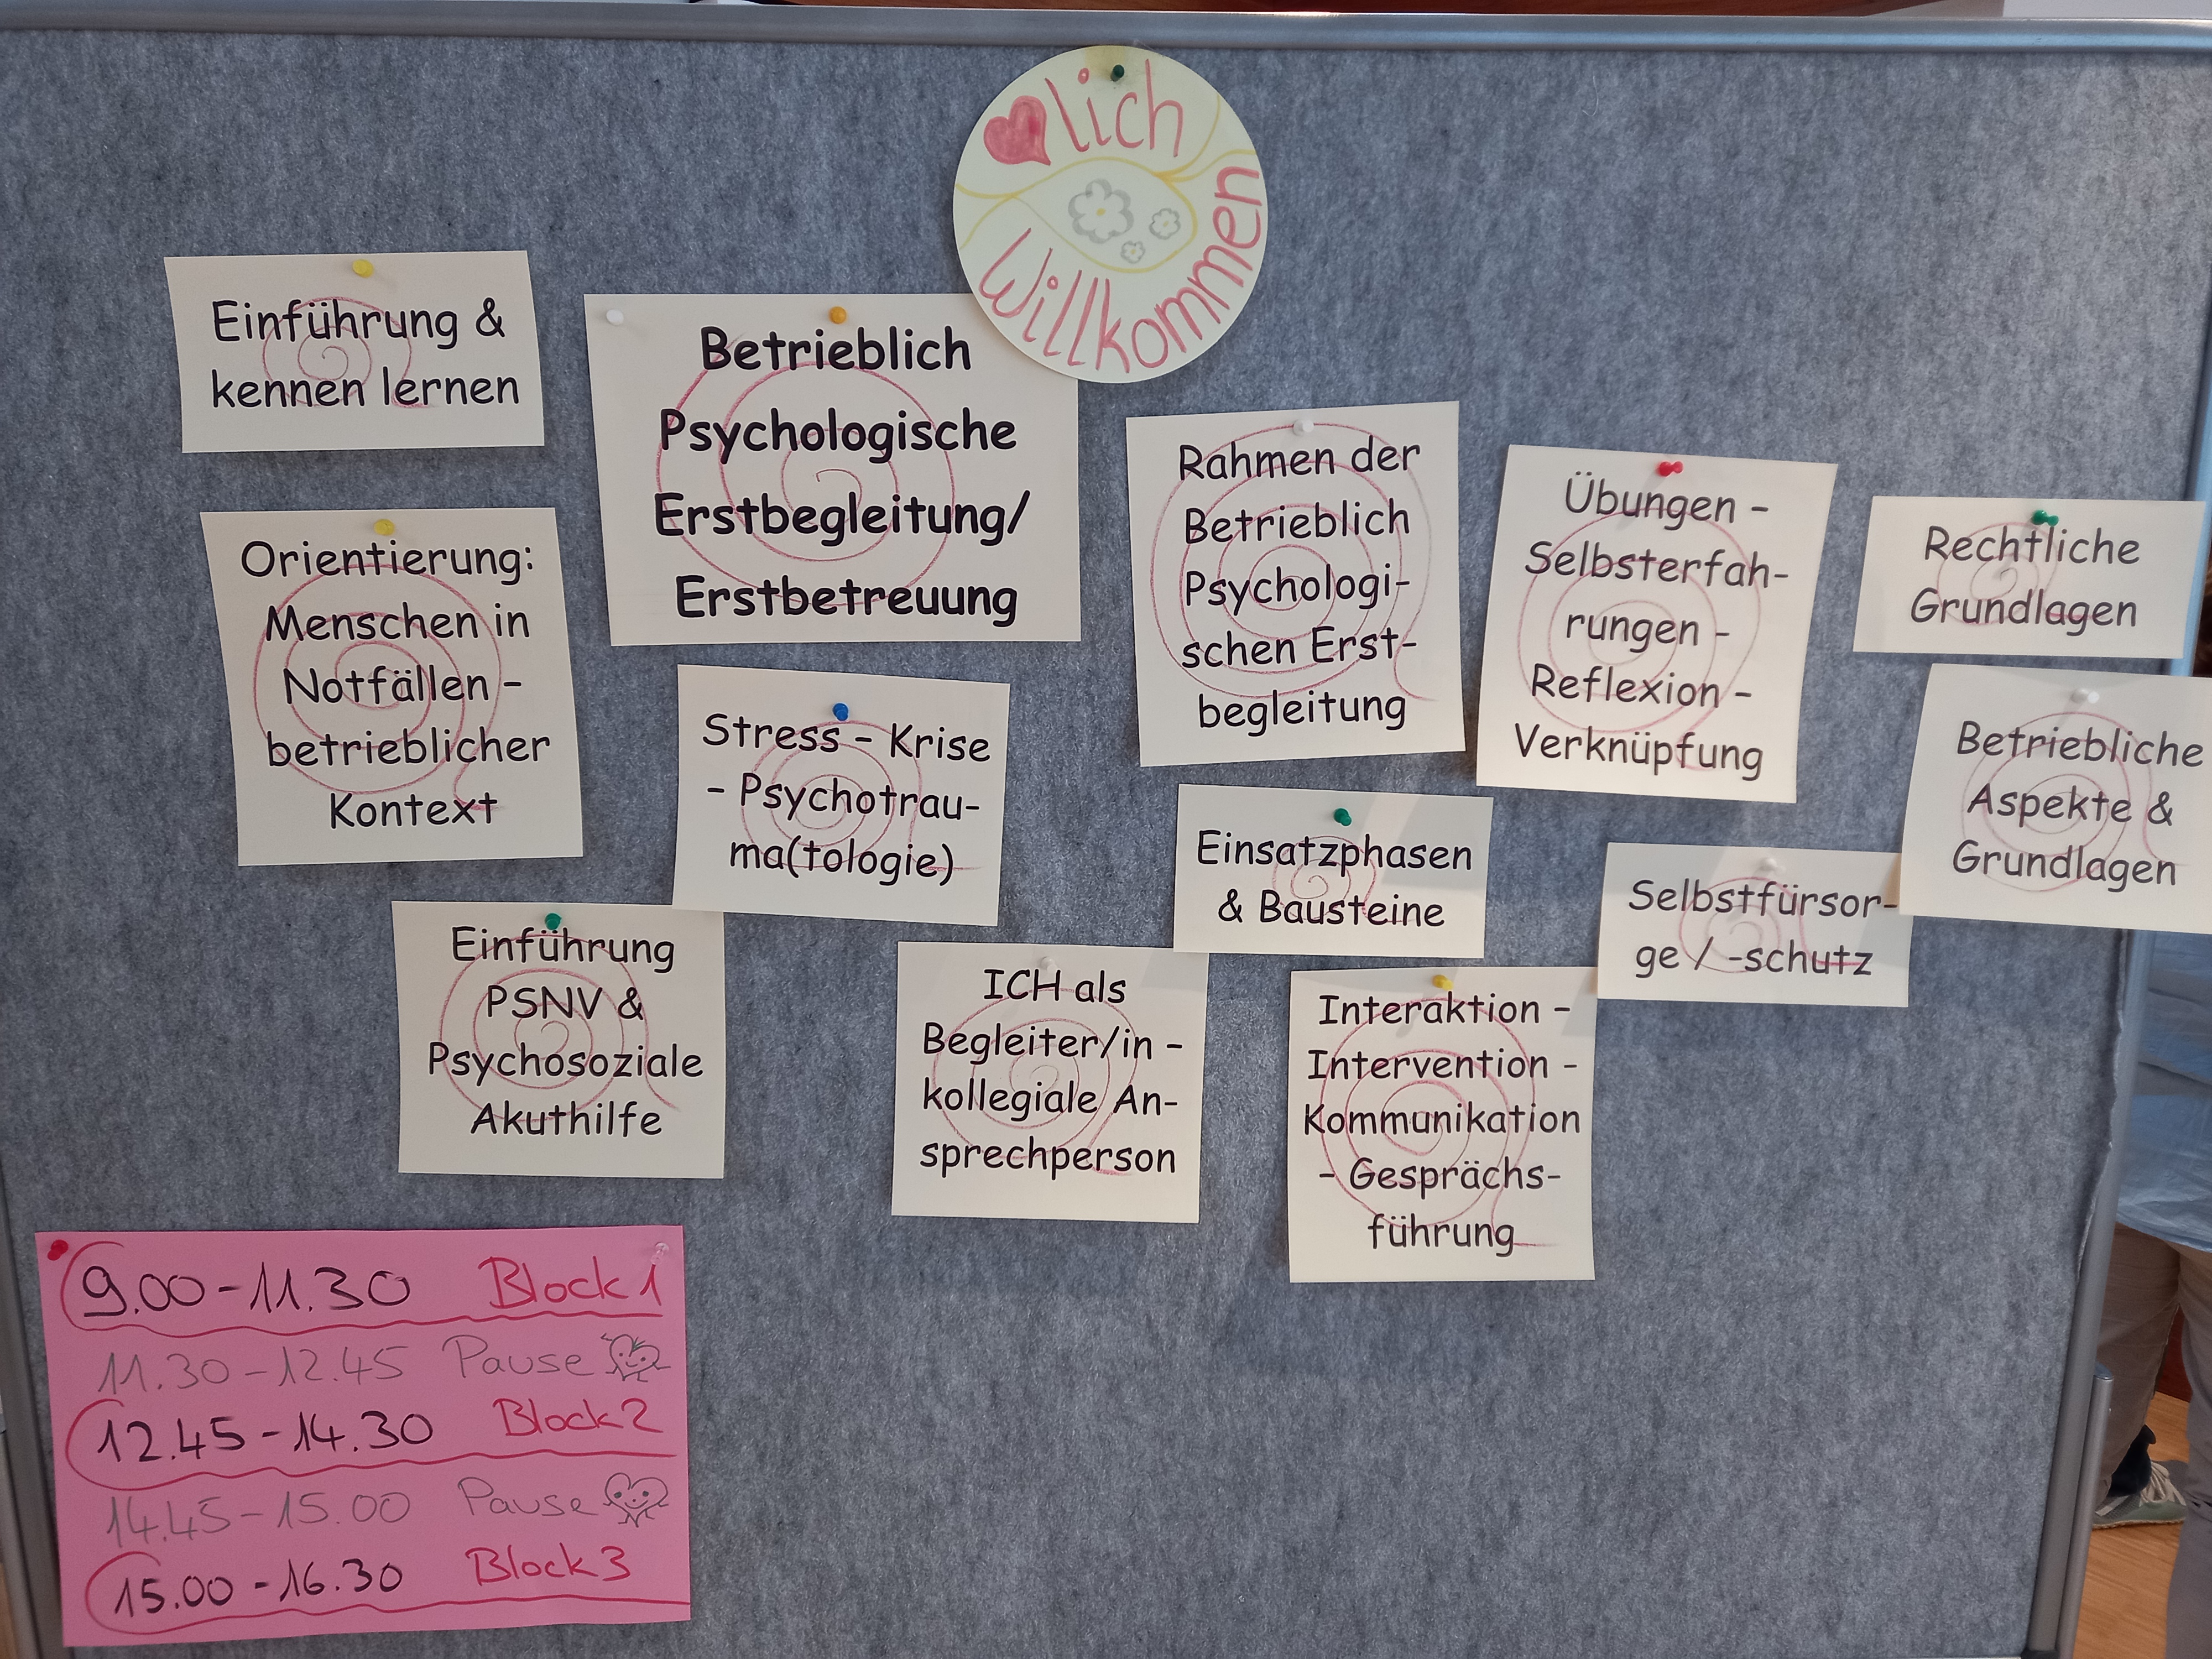 lich
Willkommen
Einführung &
kennen lernen
Betrieblich
Psychologische
Erstbegleitung/
Erstbetreuung
Rahmen der
Betrieblich
Psychologi-
schen Erst-
begleitung
Übungen -
Selbsterfah-
rungen -
Reflexion -
Verknüpfung
Rechtliche
Grundlagen
Orientierung:
Menschen in
Notfällen -
betrieblicher
Kontext
Stress - Krise
- Psychotrau-
ma(tologie)
Einsatzphasen
& Bausteine
Selbstfürsor-
ge / -schutz
Betriebliche
Aspekte &
Grundlagen
Einführung
PSNV &
Psychosoziale
Akuthilfe
ICH als
Begleiter/in -
kollegiale An-
sprechperson
Interaktion -
Intervention -
Kommunikation
- Gesprächs-
führung
9.00-11.30 Block 1
11.30-12.45 Pause
12.45-14.30 Block 2
14.45-15.00 Pause
15.00-16.30 Block 3